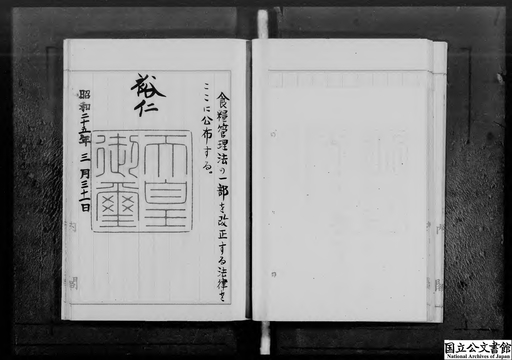 食糧管理法の一部を改正する法律を
ここに公布する。
裕仁
天皇
御璽
昭和二十五年三月三十一日
国立公文書館
National Archives of Japan